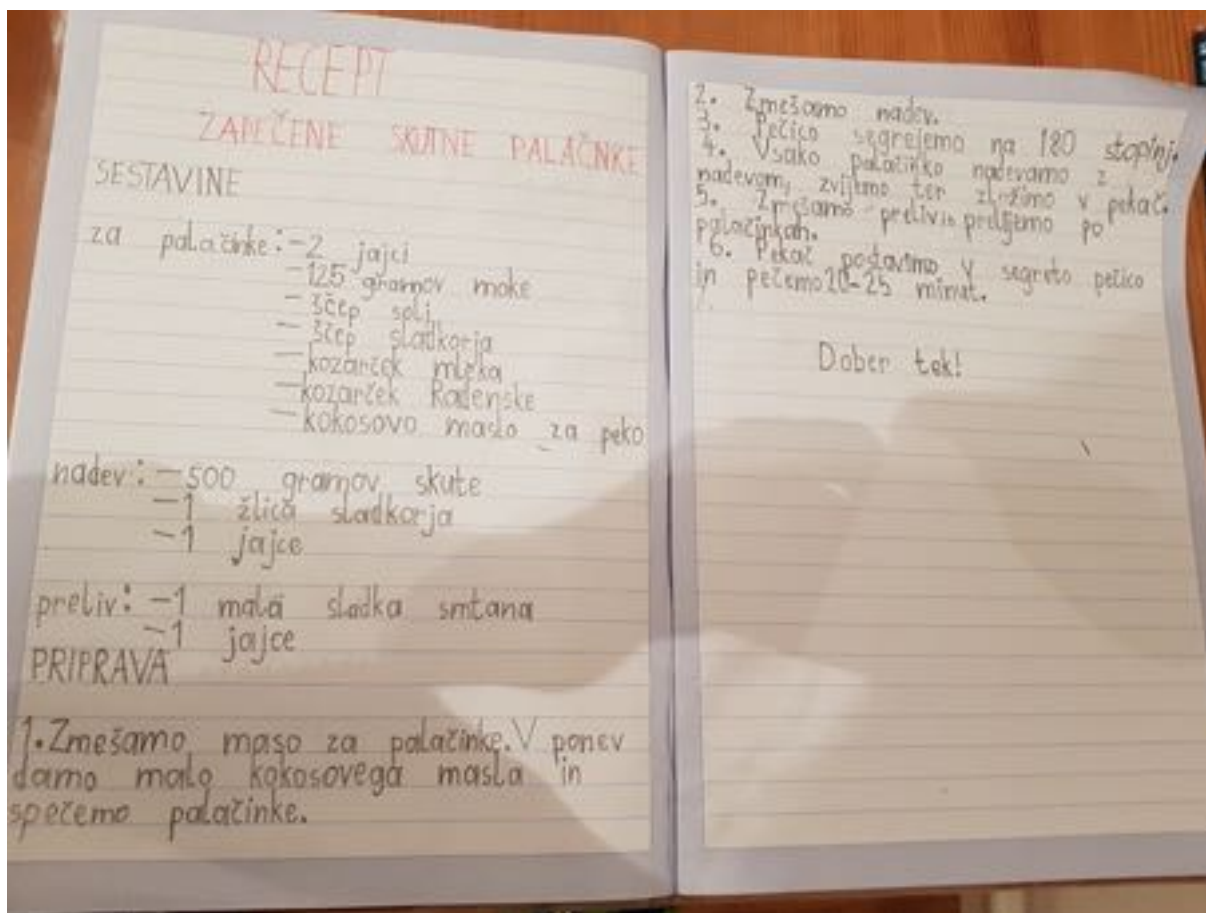 RECEPT
ZAPEČENE SKUTNE PALAČNKE
SESTAVINE
za palačinke: -2 jajci
-125 gramov moke
- ščep soli
- ščep sladkorja
- kozarček mleka
- kozarček Radenske
- kokosovo maslo za peko
nadev: -500 gramov skute
-1 žlica sladkorja
-1 jajce
preliv: -1 mala sladka smtana
-1 jajce
PRIPRAVA
1. Zmešamo maso za palačinke. V ponev
damo malo kokosovega masla in
spečemo palačinke.
2. Zmešamo nadev.
3. Pečico segrejemo na 180 stopinj.
4. Vsako palačinko nadevamo z
nadevom, zvijemo ter zložimo v pekač.
5. Zmešamo preliv in prelijemo po
palačinkah.
6. Pekač postavimo v segreto pečico
in pečemo 20-25 minut.
Dober tek!